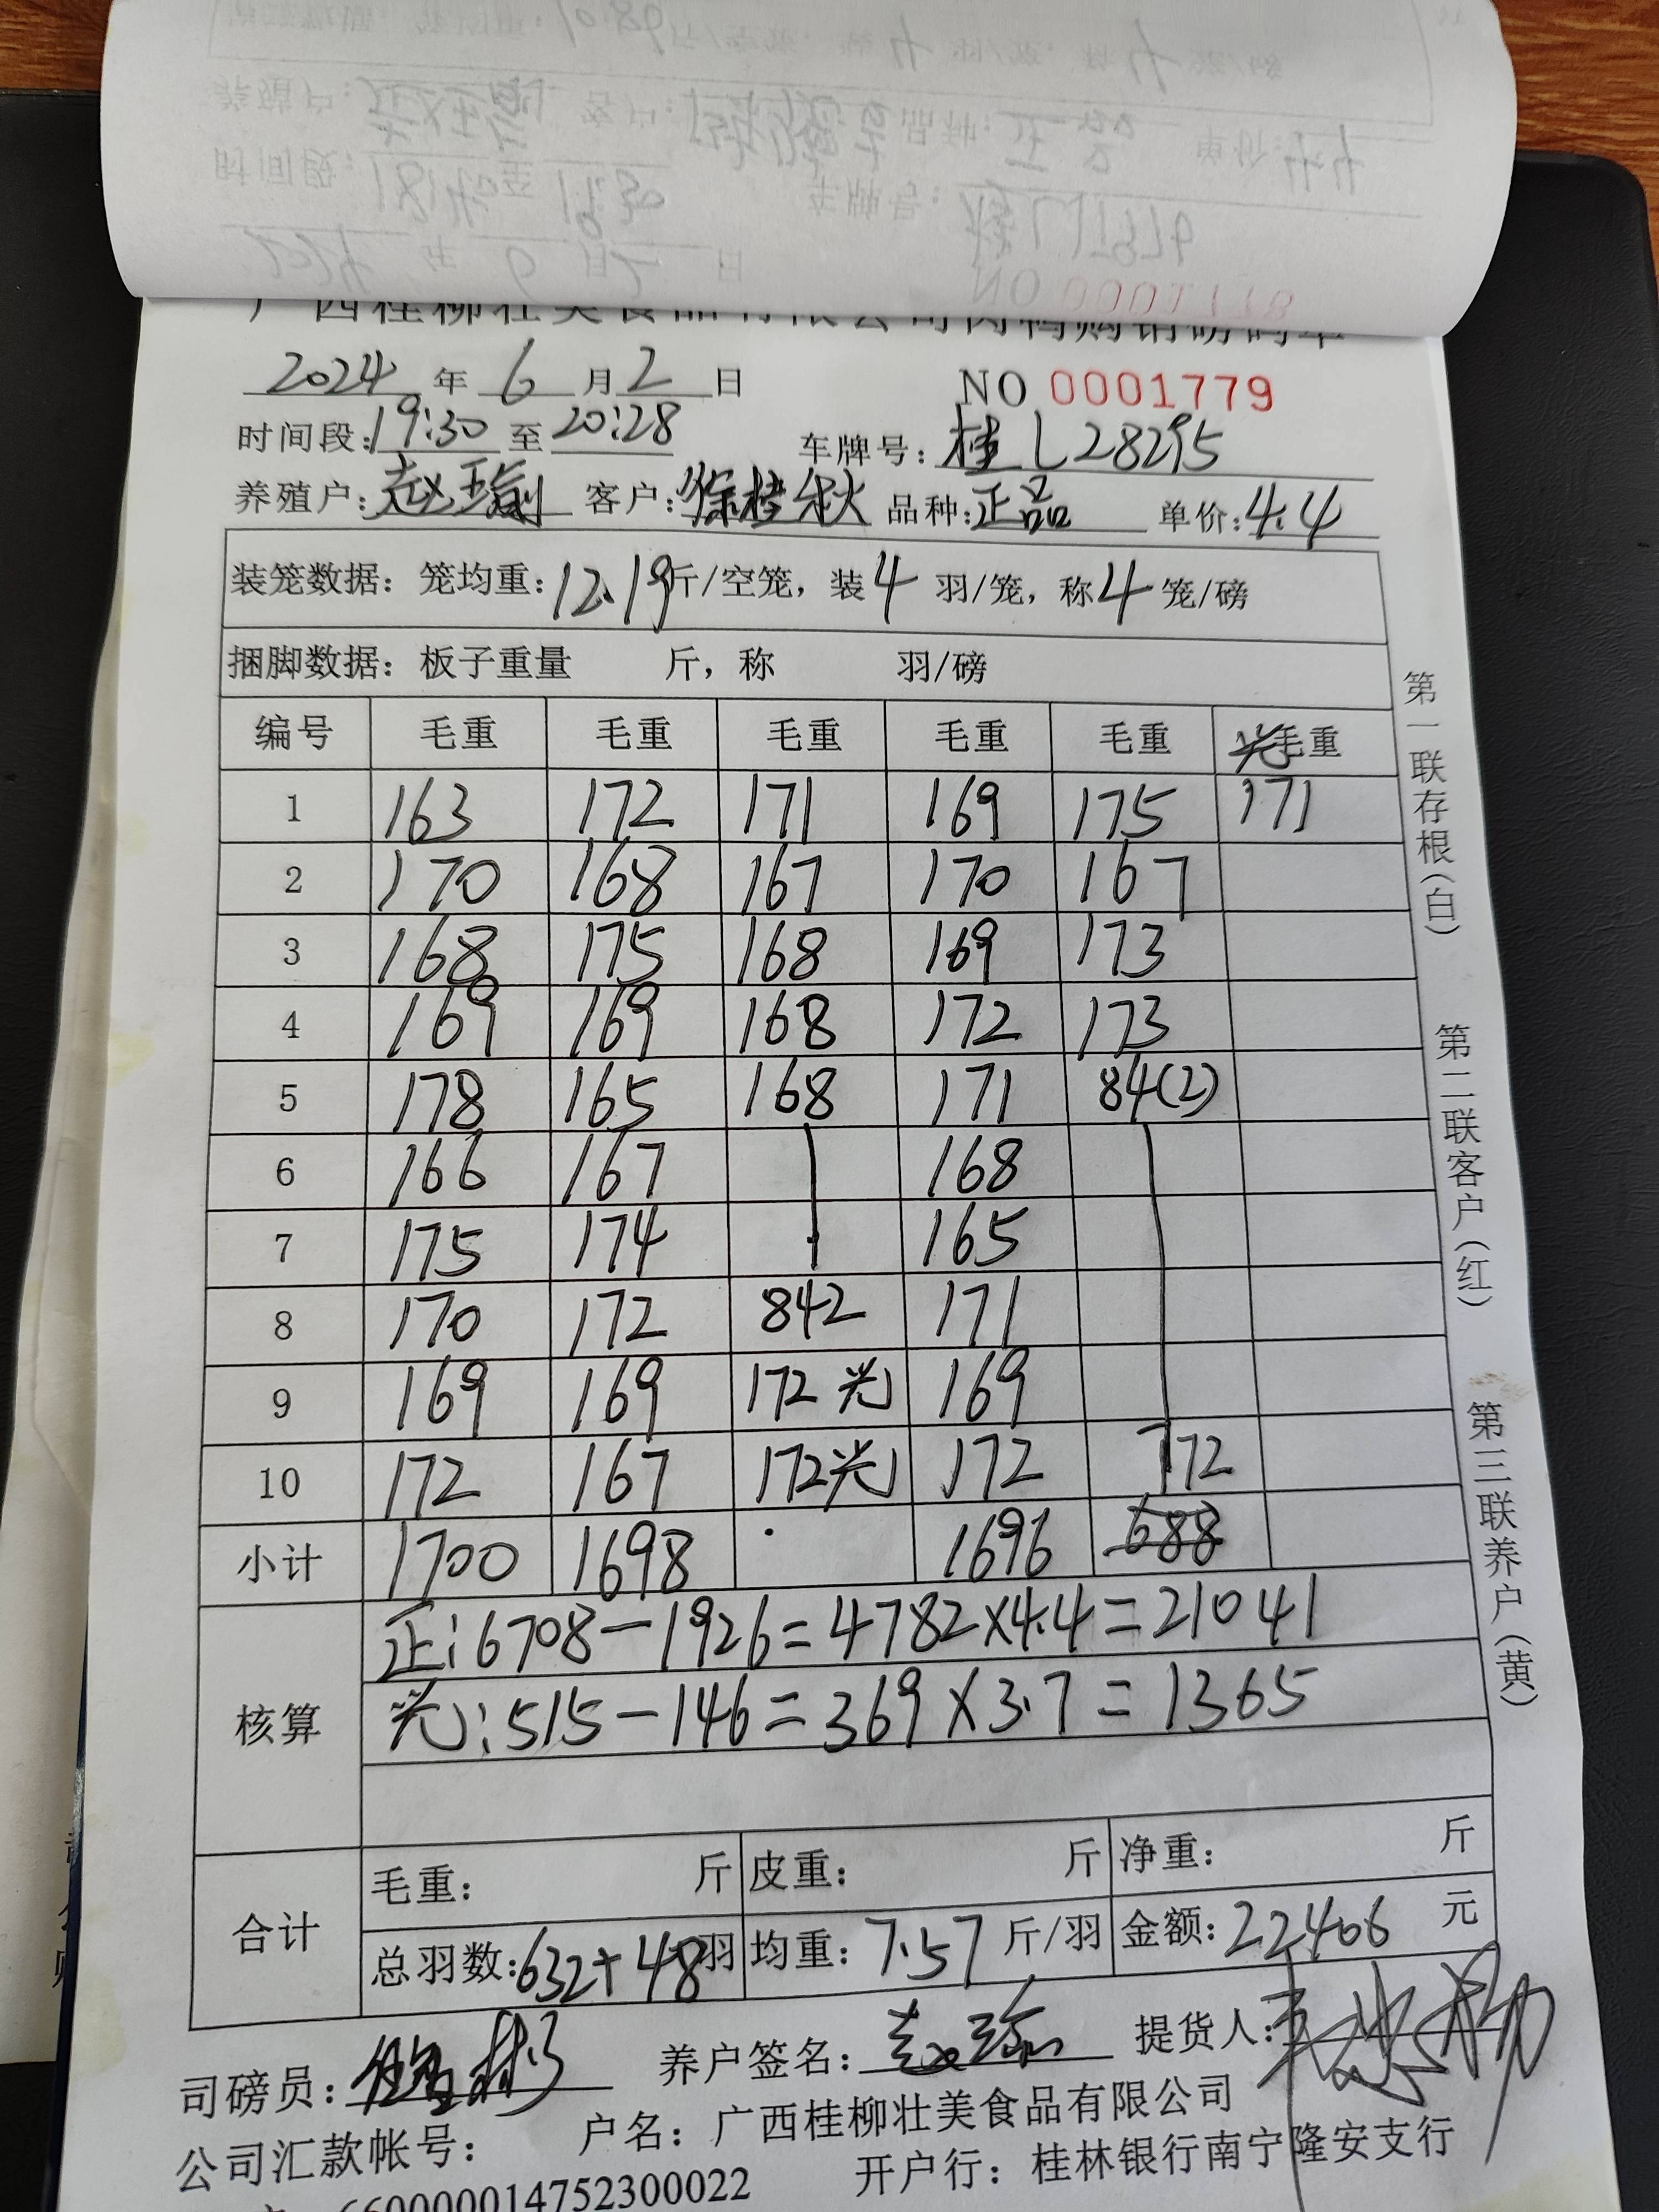 广西桂柳壮美食品有限公司肉鸭购销磅码单
2024 年 6 月 2 日 NO 0001779
时间段:19:30 至 20:28 车牌号: 桂L28295
养殖户: 赵瑜 客户: 徐桂秋 品种: 正品 单价: 4.4
装笼数据: 笼均重: 12.19 斤/空笼, 装 4 羽/笼, 称 4 笼/磅
捆脚数据: 板子重量 斤, 称 羽/磅
编号 毛重 毛重 毛重 毛重 毛重 光毛重
1 163 172 171 169 175 171
2 170 168 167 170 167
3 168 175 168 169 173
4 169 169 168 172 173
5 178 165 168 171 84(2)
6 166 167 168
7 175 174 165
8 170 172 842 171
9 169 169 172 光 169
10 172 167 172光 172 172
小计 1700 1698 1696 688
核算
正: 6708-1926=4782×4.4=21041
光: 515-146=369×3.7=1365
合计
毛重: 斤 皮重: 斤 净重: 斤
总羽数: 632+48 羽 均重: 7.57 斤/羽 金额: 22406 元
司磅员: 养户签名: 赵瑜 提货人:
公司汇款帐号: 户名: 广西桂柳壮美食品有限公司
660000014752300022 开户行: 桂林银行南宁隆安支行
第一联存根(白)
第二联客户(红)
第三联养户(黄)